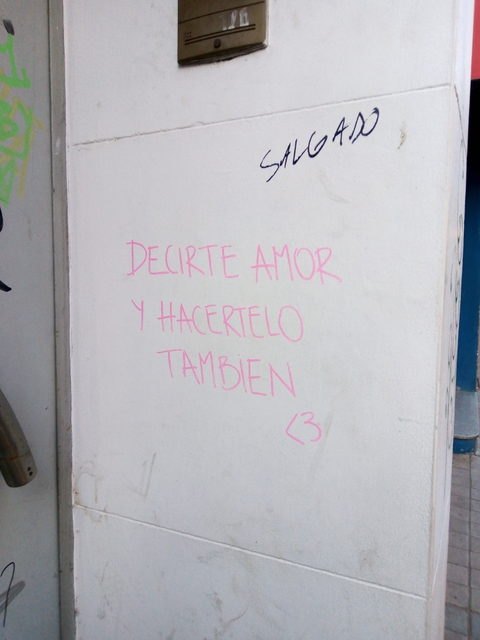 SALGADO
DECIRTE AMOR
Y HACERTELO
TAMBIEN
<3